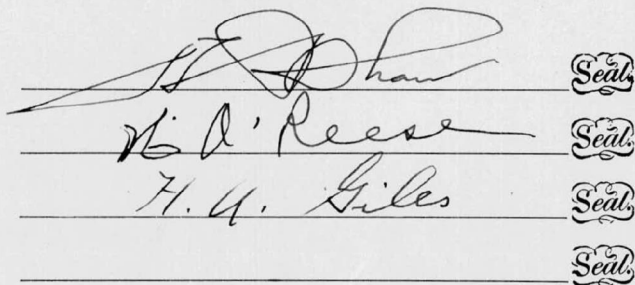 Shaw Seal.
O'Reese Seal.
H. A. Giles Seal.
Seal.